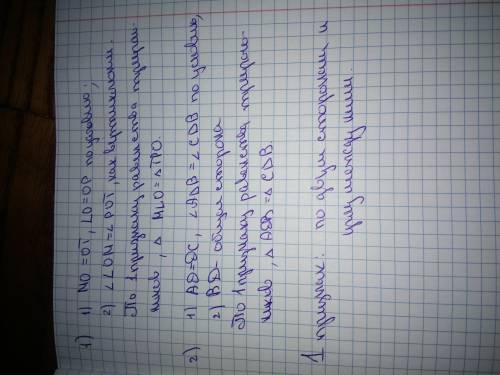 1) 1) MO = OT, LO = OP по условию;
2) ∠LOM = ∠POT, как вертикальные.
По 1 признаку равенства треуголь-
ников, △ MLO = △TPO.
2) 1) AD = DC, ∠ADB = ∠CDB по условию,
2) BD - общая сторона
По 1 признаку равенства треуголь-
ников, △ ADB = △ CDB.
1 признак: по двум сторонам и
углу между ними.